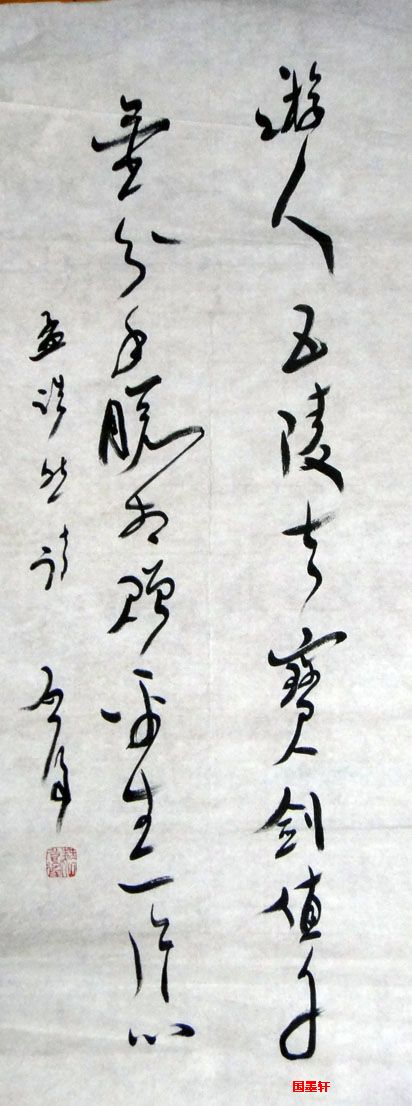 游人五陵去寶剑值千
金分手脱相赠平生一片心
孟浩然诗
国墨轩